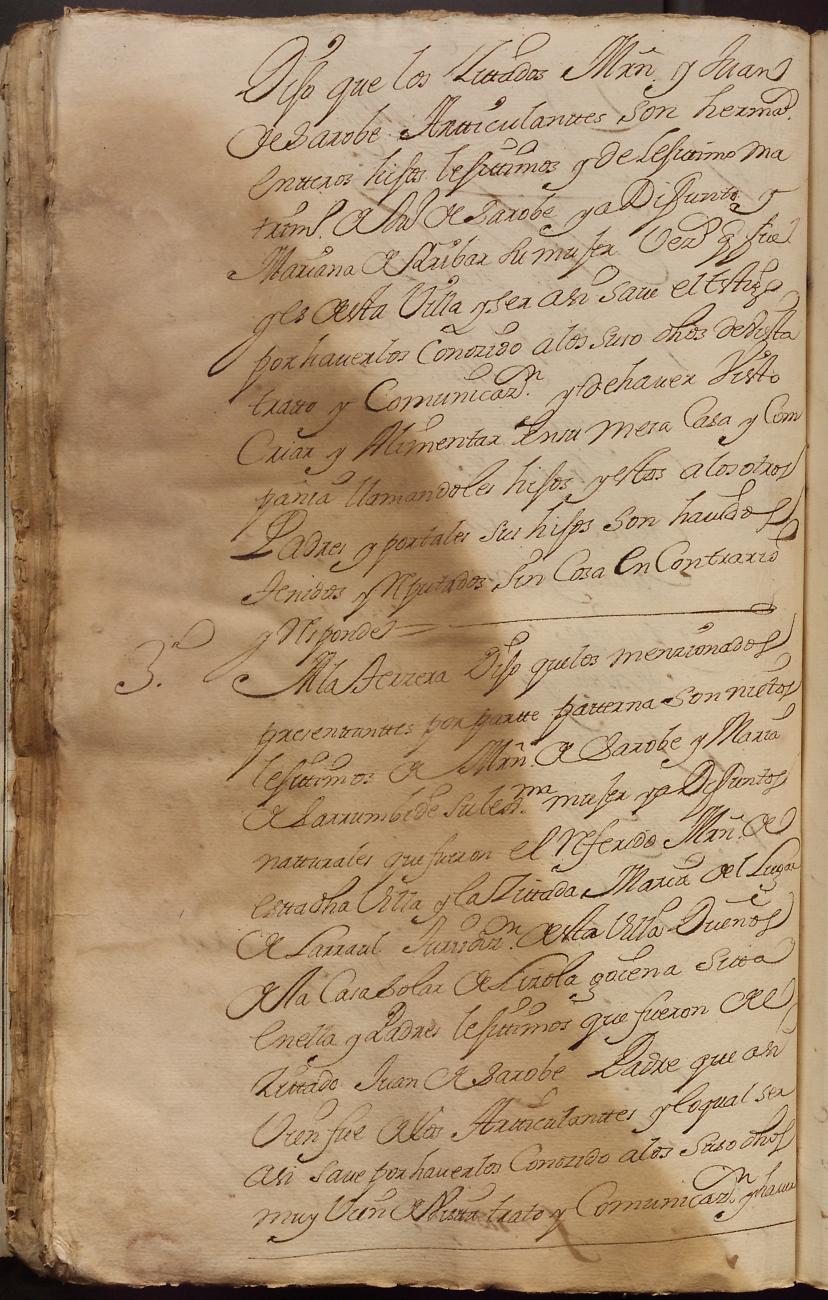 Dijo que los Zittados Mrñ. y Juan
de Sarobe Artticulanttes son herma.s
entteros hijos lexittimos y de lexittimo ma
trim.o de Ju.o de Sarobe ya Difunto y
Mariana de Arribar su mujer Vez.s q fue
y es de esta Villa y ser asi save el testigo
por haverlos Conozido a los suso dhos de vista
tratto y Comunicaz.n y de haver Visto
Criar y Alimentar en su mesa Casa y Com
pania llamandoles hijos y estos a los otros
Padres y por tales sus hijos son havidos
tenidos y Reputados sin Cosa en Contrario
y Responde
3.a A la terzera Dijo que los menzionados
presentanttes por partte patterna son nietos
lexittimos de Mrñ. de Sarobe y Maria
de Larrumbide su lexma mujer ya Difuntos
natturales que fueron el Referido Mrñ. de
esta dha Villa y la Zittada Maria del Lugar
de Larraul Jurisdiz.n de esta Villa Dueños
de la Casa Solar de Lizola gocena sitta
en ella y Padres lexittimos que fueron del
Zittado Juan de Sarobe Padre que asi
vien fue de los Artticulanttes y lo qual ser
asi save por haverlos Conozido a los suso dhos
muy vien de Vista trato y Comunicaz.n y haver